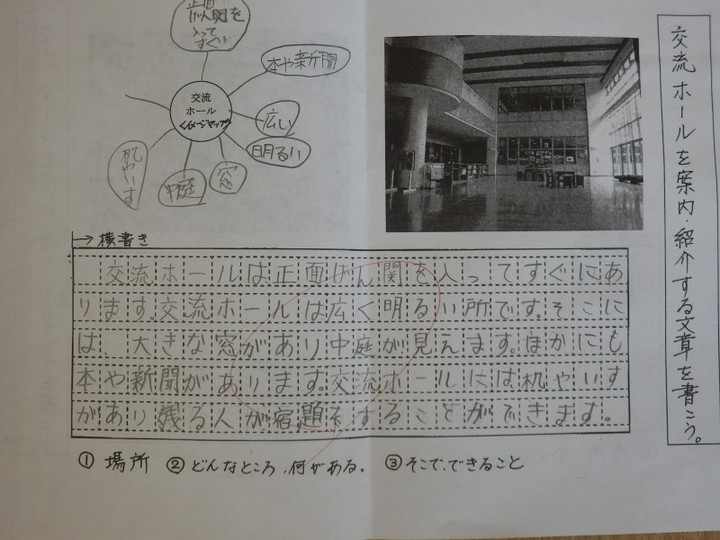 交流ホールを案内・紹介する文章を書こう。
正面
げん関を
入って
すぐ
本や新聞
交流
ホール
<イメージマップ>
広い
明るい
窓
中庭
机やいす
→横書き
交流ホールは正面げん関を入ってすぐにあ
ります。交流ホールは広く明るい所です。そこに
は、大きな窓があり中庭が見えます。ほかにも
本や新聞があります。交流ホールには机やいす
があり残る人が宿題をすることができます。
① 場所 ② どんなところ、何がある。 ③ そこで、できること